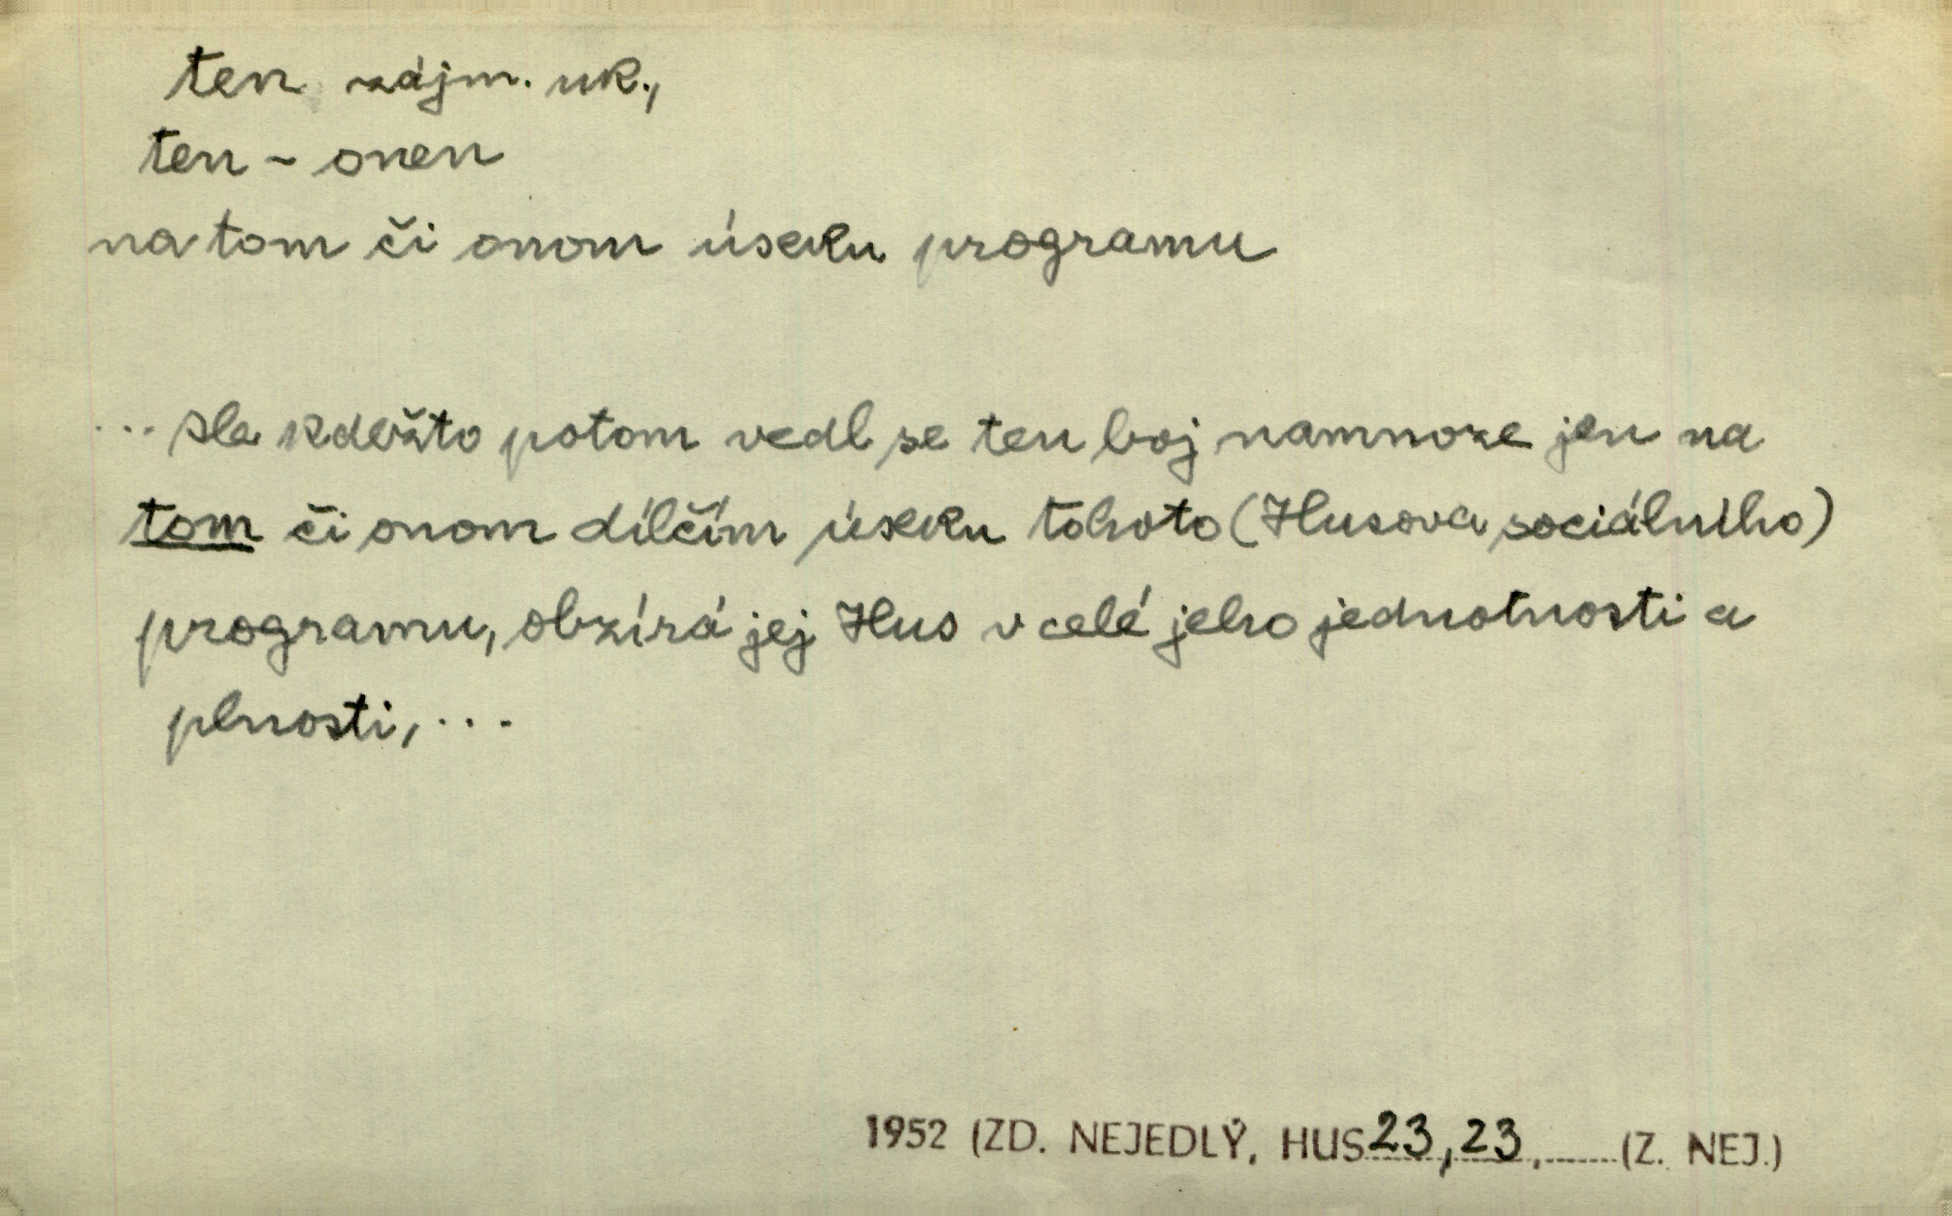 ten zájm. uk.,
ten - onen
na tom či onom úseku programu
... Ale kdežto potom vedl se ten boj namnoze jen na
tom či onom dílčím úseku tohoto (Husova sociálního)
programu, obzírá jej Hus v celé jeho jednotnosti a
plnosti, ...
1952 (ZD. NEJEDLÝ, HUS 23, 23, ...... (Z. NEJ.)